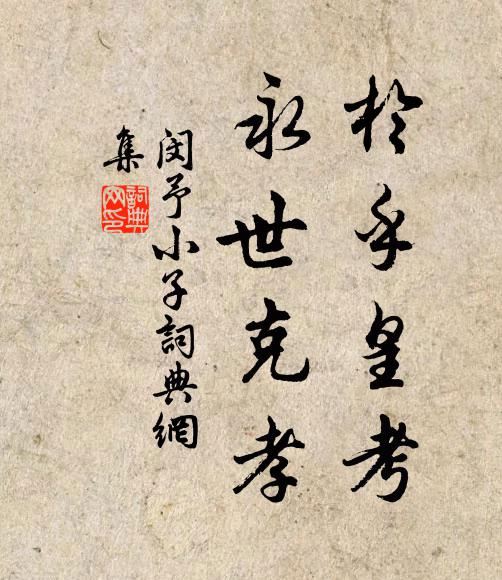 於乎皇考
永世克孝
闵予小子詞典網
集
詞典网印